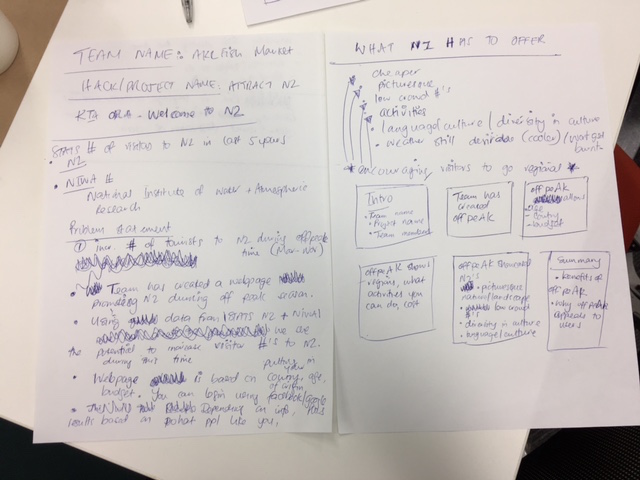 TEAM NAME: AKL Fish Market
HACK/PROJECT NAME: ATTRACT NZ
KIA ORA - Welcome to NZ
STATS # of visitors to NZ in last 5 years
• NZ
• NIWA #
National Institute of Water + Atmospheric
Research
Problem statement
① Inc. # of tourists to NZ during offpeak
time (Mar-Nov)
• Team has created a webpage
promoting NZ during off peak season.
• Using data from STATS NZ + NIWA
we are
the potential to increase visitor #'s to NZ.
during this time
putting in
your
• Webpage is based on country, age,
of origin
budget. You can login using facebook/Google
• Depending on info, pulls
results based on what ppl like you.
WHAT NZ HAS TO OFFER
cheaper
picturesque
low crowd #'s
activities
• language/culture / diversity in culture
• weather still desirable (cooler) / won't get
burnt
* encouraging visitors to go regional *
Intro
• Team name
• Project name
• Team members
Team has
created
offpeAk
offpeAk
• Age
• Country
• budget
offpeAk shows
• regions, what
activities you
can do, cost
offpeAk showcases
NZ's
• picturesque
natural landscape
• low crowd
#'s
• diversity in culture
• language/culture
Summary
• benefits of
offpeAk
• why offpeAk
appeals to
users